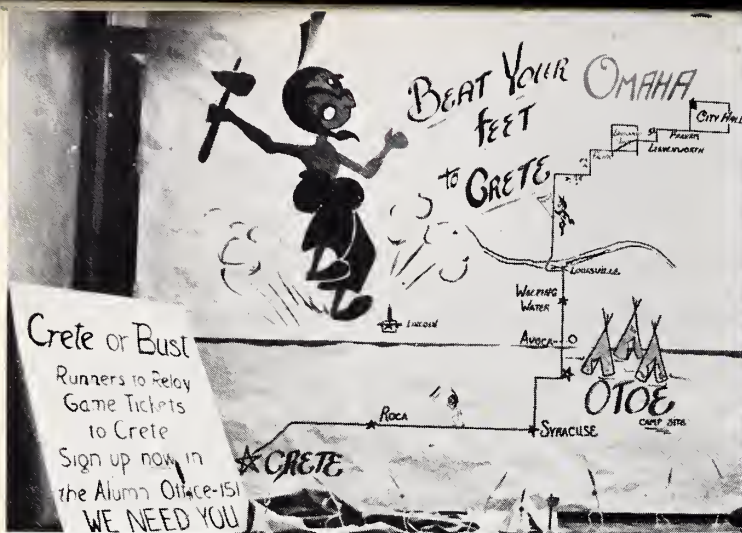 BEAT YOUR
FEET
to CRETE
OMAHA
CITY HALL
FARNAM
LEAVENWORTH
LOUISVILLE
WEEPING
WATER
AVOCA
OTOE
CAMP SITE
LINCOLN
ROCA
SYRACUSE
CRETE
Crete or Bust
Runners to Relay
Game Tickets
to Crete
Sign up now in
the Alumn Office-151
WE NEED YOU